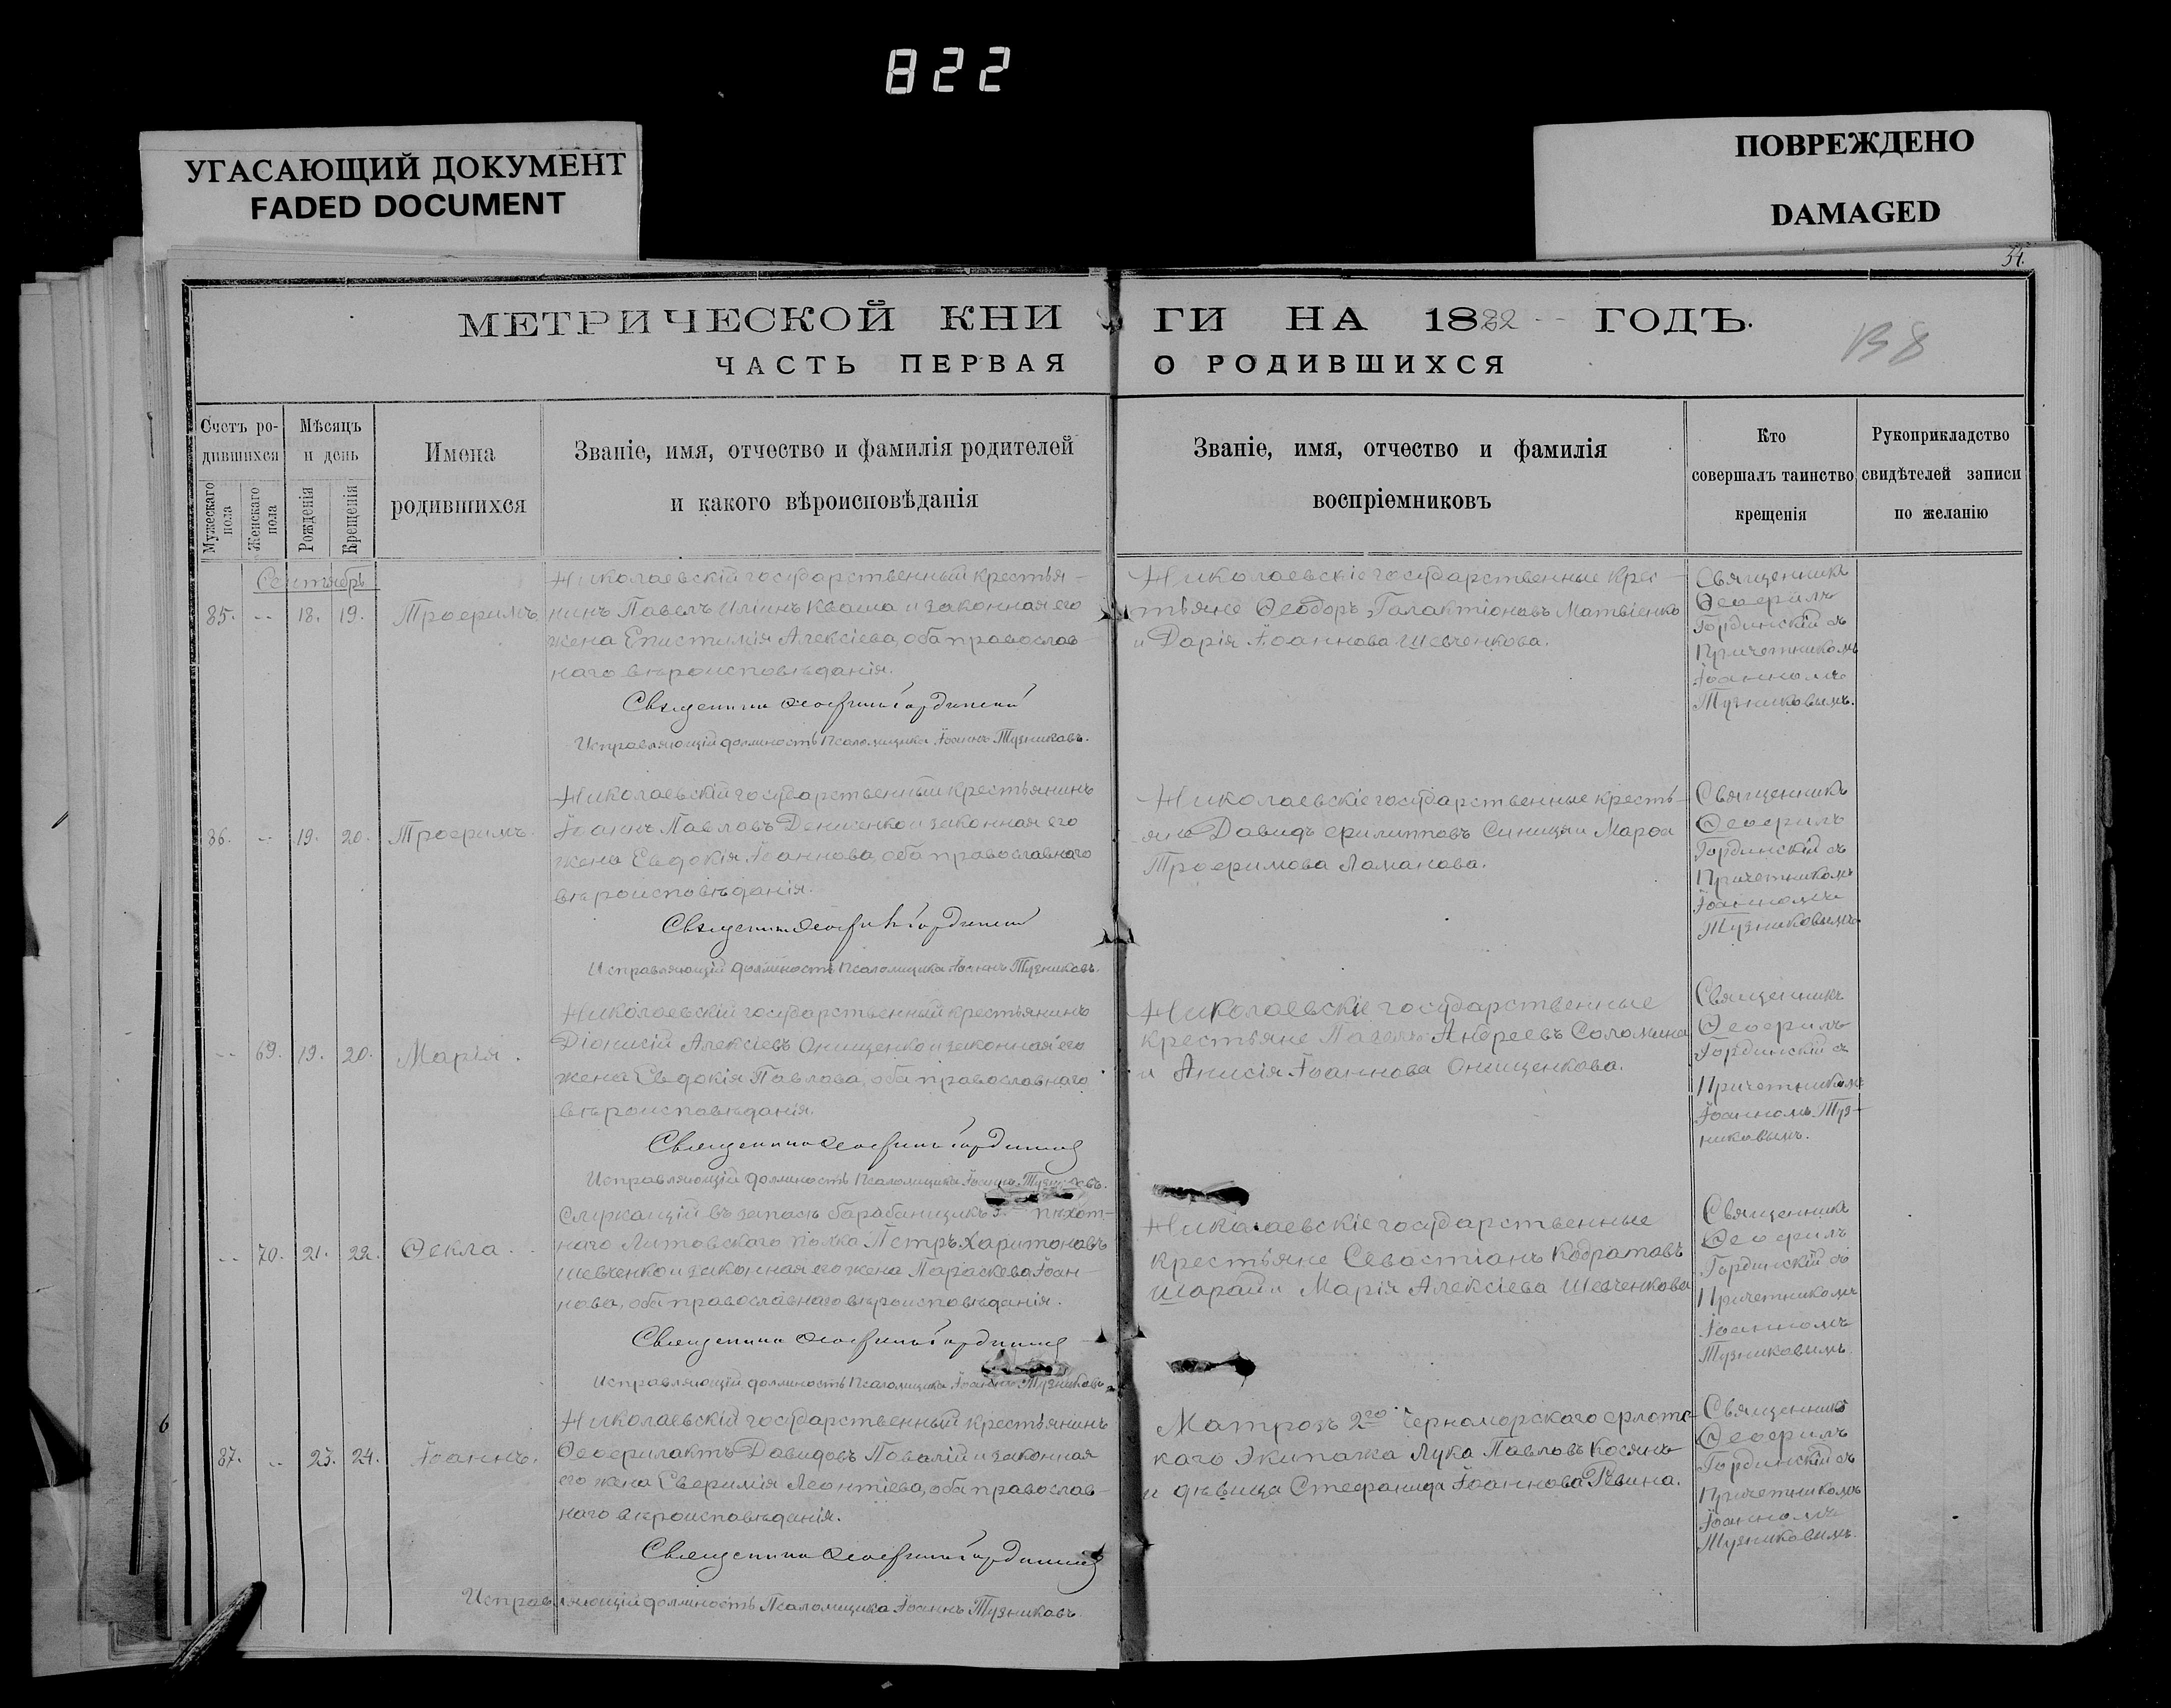 822
УГАСАЮЩИЙ ДОКУМЕНТ
FADED DOCUMENT
ПОВРЕЖДЕНО
DAMAGED
54.
МЕТРИЧЕСКОЙ КНИГИ НА 1882 ГОДЪ.
ЧАСТЬ ПЕРВАЯ О РОДИВШИХСЯ
Счетъ ро-
дившихся
Мужескаго пола
Женскаго пола
Мѣсяцъ
и день
Рожденія
Крещенія
Имена
родившихся
Званіе, имя, отчество и фамилія родителей
и какого вѣроисповѣданія
Званіе, имя, отчество и фамилія
воспріемниковъ
Кто
совершалъ таинство
крещенія
Рукоприкладство
свидѣтелей записи
по желанію
Сентябрь
85. -- 18. 19. Трофимъ
Николаевскій государственный крестья-
нинъ Павелъ Иліинъ Кваша и законная его
жена Епистимія Алексіева, оба православ-
наго вѣроисповѣданія.
Священникъ Ѳеофилъ Гординскій
Исправляющій должность Псаломщика Іоаннъ Тузниковъ.
Николаевскіе государственные крес-
тьяне Ѳеодоръ Галактіоновъ Матвіенко
и Дарія Іоаннова Шевченкова.
Священникъ
Ѳеофилъ
Гординскій съ
Причетникомъ
Іоанномъ
Тузниковымъ.
86. -- 19. 20. Трофимъ.
Николаевскій государственный крестьянинъ
Іоаннъ Павловъ Дениченко и законная его
жена Евдокія Іоаннова, оба православнаго
вѣроисповѣданія.
Священникъ Ѳеофилъ Гординскій
Исправляющій должность Псаломщика Іоаннъ Тузниковъ.
Николаевскіе государственные кресть-
яне Давидъ Филипповъ Синица и Марѳа
Трофимова Ламанова.
Священникъ
Ѳеофилъ
Гординскій съ
Причетникомъ
Іоанномъ
Тузниковымъ
-- 69. 19. 20. Марія.
Николаевскій государственный крестьянинъ
Діонисій Алексіевъ Онищенко и законная его
жена Евдокія Павлова, оба православнаго
вѣроисповѣданія.
Священникъ Ѳеофилъ Гординскій
Исправляющій должность Псаломщика Іоаннъ
Николаевскіе государственные
крестьяне Павелъ Андреевъ Соломина
и Анисія Іоаннова Онищенкова.
Священникъ
Ѳеофилъ
Гординскій съ
Причетникомъ
Іоанномъ Туз-
никовымъ.
-- 70. 21. 22. Ѳекла.
въ запасѣ барабанщикъ 5. пѣхот-
наго Литовскаго полка Петръ Харитоновъ
Шевченко и законная его жена Параскева Іоан-
нова, оба православнаго вѣроисповѣданія.
Священникъ Ѳеофилъ Гординскій
Исправляющій должность Псаломщика Іоаннъ Тузниковъ
Николаевскіе государственные
крестьяне Севастіанъ Кодратовъ
Шарай и Марія Алексіева Шевченкова
Священникъ
Ѳеофилъ
Гординскій съ
Причетникомъ
Іоанномъ
Тузниковымъ.
87. -- 23. 24. Іоаннъ.
Николаевскій государственный крестьянинъ
Ѳеофилактъ Давидовъ Повалій и законная
его жена Евфимія Леонтіева, оба православ-
наго вѣроисповѣданія.
Священникъ Ѳеофилъ Гординскій
Исправляющій должность Псаломщика Іоаннъ Тузниковъ.
Матрозъ 2го Черноморскаго флотс-
каго Экипажа Лука Павловъ Косянъ
и дѣвица Стефанида Іоаннова Ревина.
Священникъ
Ѳеофилъ
Гординскій съ
Причетникомъ
Іоанномъ
Тузниковымъ.